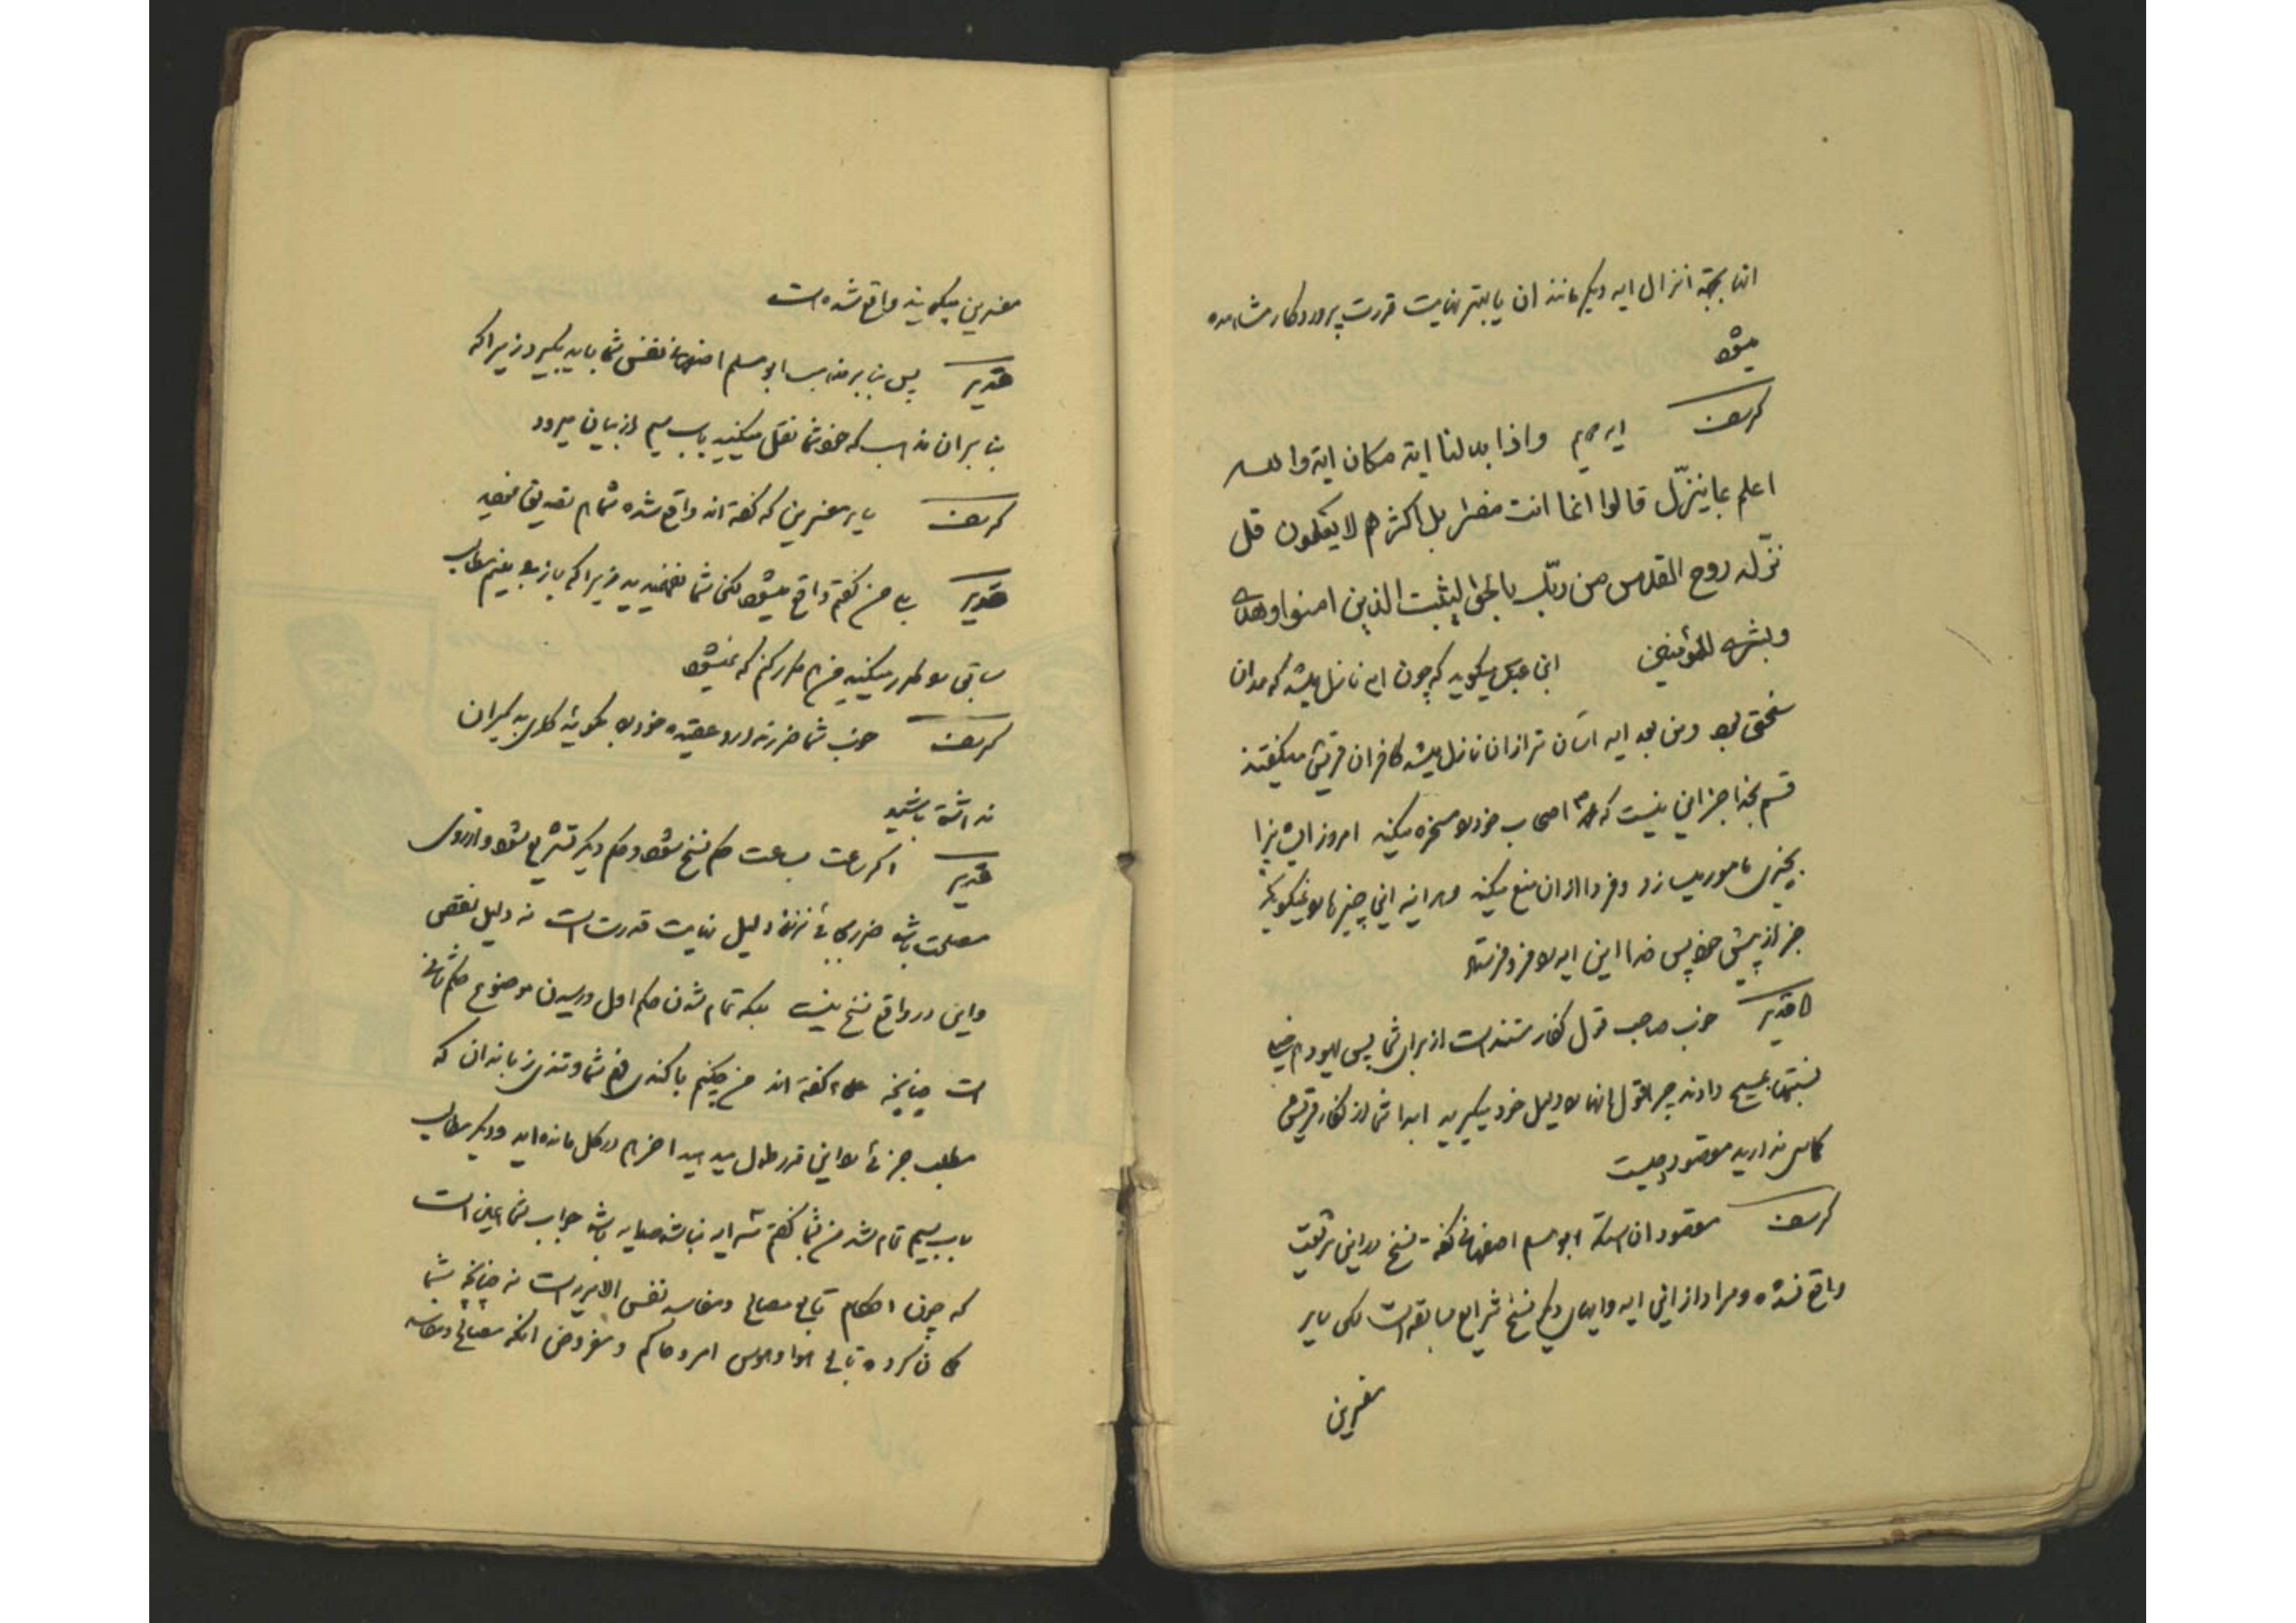 اتنا بجهة انزال ایه دیگر مانند ان یا بهتر نهایت قدرت پروردگار مشاهده
میشود
کریف ایه سیم واذا بدلنا ایة مکان ایة والله
اعلم بما ینزّل قالوا انما انت مفتر بل اکثرهم لا یعلمون قل
نزّله روح القدس من ربّک بالحق لیثبت الذین امنوا وهدی
وبشری للمؤمنین ابن عباس میگوید که چون ایه نازل میشد که در ان
سختی بود ومن بعد ایه اسان تر از ان نازل میشد کافران قریش میگفتند
قسم بخدا جز این نیست که محمد اصحاب خود را مسخره میکند امروز ایشانرا
بچیزی مامور میسازد وفردا از ان منع میکند وهر اینه این چیزها را نمیگوید
جز از پیش خود پس خدا این ایه را فرو فرستاد
قدیر خوب صاحب قول کفار مستند است از برای شما پس یهود هم خیلی
نسبتها بمسیح دادند چرا قول انها را دلیل خود نمیگیرید ابدا شما از کفار قریش
کمی ندارید مقصود چیست
کریف مقصود ان استکه ابو مسلم اصفهانی گفته نسخ در این شریعت
واقع نشده ومراد از این ایه وایهای دیگر نسخ شرایع سابقه است لکن سایر
مفسرین
مفسرین میگویند واقع شده است
قدیر پس بنا بر مذهب ابو مسلم اصفهانی نفس شما باید بگیرد زیرا که
بنا بر ان مذهب که خود شما نقل میکنید باب سیم از بیان میرود
کریف سایر مفسرین که گفته اند واقع شده شما هم تصدیق نمودید
قدیر بلی من گفتم واقع میشود لکن شما نفهمیدید زیرا که باز می بینم مطالب
سابق را مکرر میکنید من هم مکرر کنم که نمیشود
کریف خوب شما ضرر ندارد عقیده خود را بگوئید کاری بدیگران
نداشته باشید
قدیر اگر ساعت بساعت حکم نسخ شود وحکم دیگر تشریع شود واز روی
مصلحت باشد ضرری بجائی نزند دلیل نهایت قدرت است نه دلیل نقص
واین در واقع نسخ نیست بلکه تمام شدن حکم اول ورسیدن موضوع حکم ثانی
است چنانچه علما گفته اند من چکنم با کندی فهم شما وتندی زباندان که
مطلب جزئی را این قدر طول میدهید اخر هم در گل مانده اید ودیگر مطالب
باب سیم تمام شد من بشما گفتم سه ایه نباشد صد ایه باشد جواب شما همین است
که چون احکام تابع مصالح ومفاسد نفس الامریست نه چنانچه شما
گمان کرده تابع هوا وهوس امر وحاکم ومفروض انکه مصالح ومفاسد